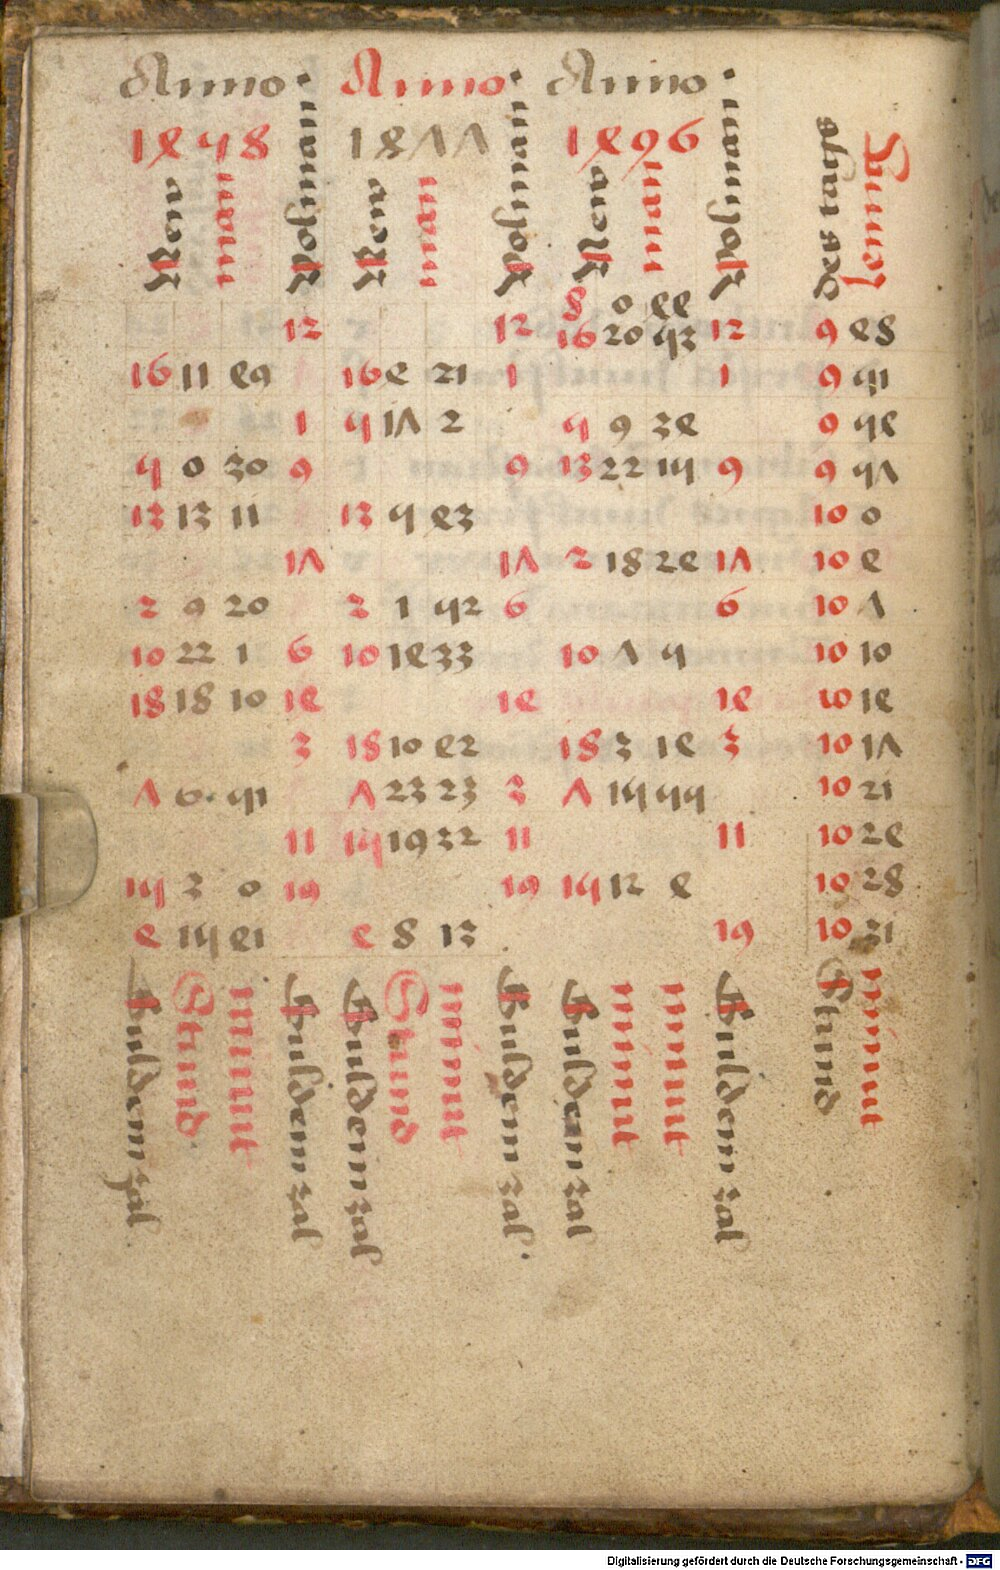 Anno · Anno · Anno ·
1458 1477 1496
New man Volman New man Volman New man Volman des tags lenng
8 0 44
12 12 16 20 53 12 9 48
16 11 49 16 4 21 1 1 9 51
1 5 17 2 5 9 34 9 54
5 0 30 9 9 13 22 15 9 9 57
13 13 11 13 5 43 10 0
17 17 2 18 24 17 10 4
2 9 20 2 1 52 6 6 10 7
10 22 1 6 10 14 33 10 7 5 10 10
18 18 10 14 14 14 10 14
3 18 10 42 18 3 14 3 10 17
7 6 51 7 23 23 3 7 15 55 10 21
11 15 19 32 11 11 10 24
15 3 0 19 19 15 12 4 10 28
4 15 41 4 8 13 19 10 31
Guldem zal Stund minut Guldem zal Guldem zal Stund minut Guldem zal Guldem zal minut minut Guldem zal Stund minut
Digitalisierung gefördert durch die Deutsche Forschungsgemeinschaft - DFG